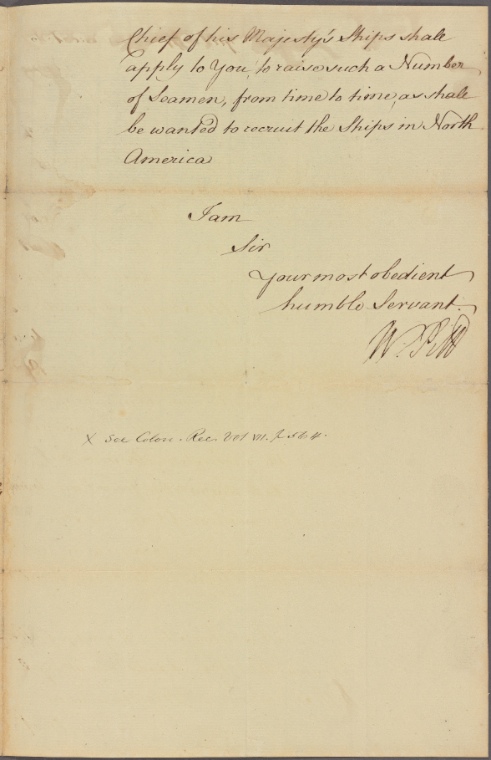 Chief of his Majesty's Ships shall
apply to You, to raise such a Number
of Seamen, from time to time, as shall
be wanted to recruit the Ships in North
America
I am
Sir
Your most obedient
humble Servant.
W. Pitt
X See Colon. Rec. Vol VI. p.